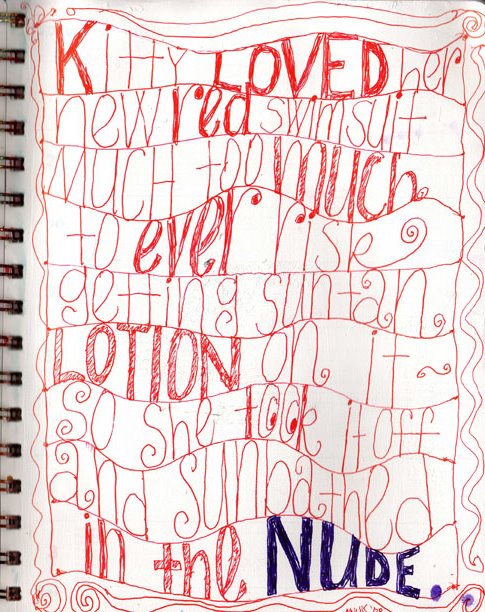 Kitty LOVED her
new red swimsuit
MUCH too much
to ever risk
getting suntan
LOTION on it
so she took it off
and sunbathed
in the NUDE.